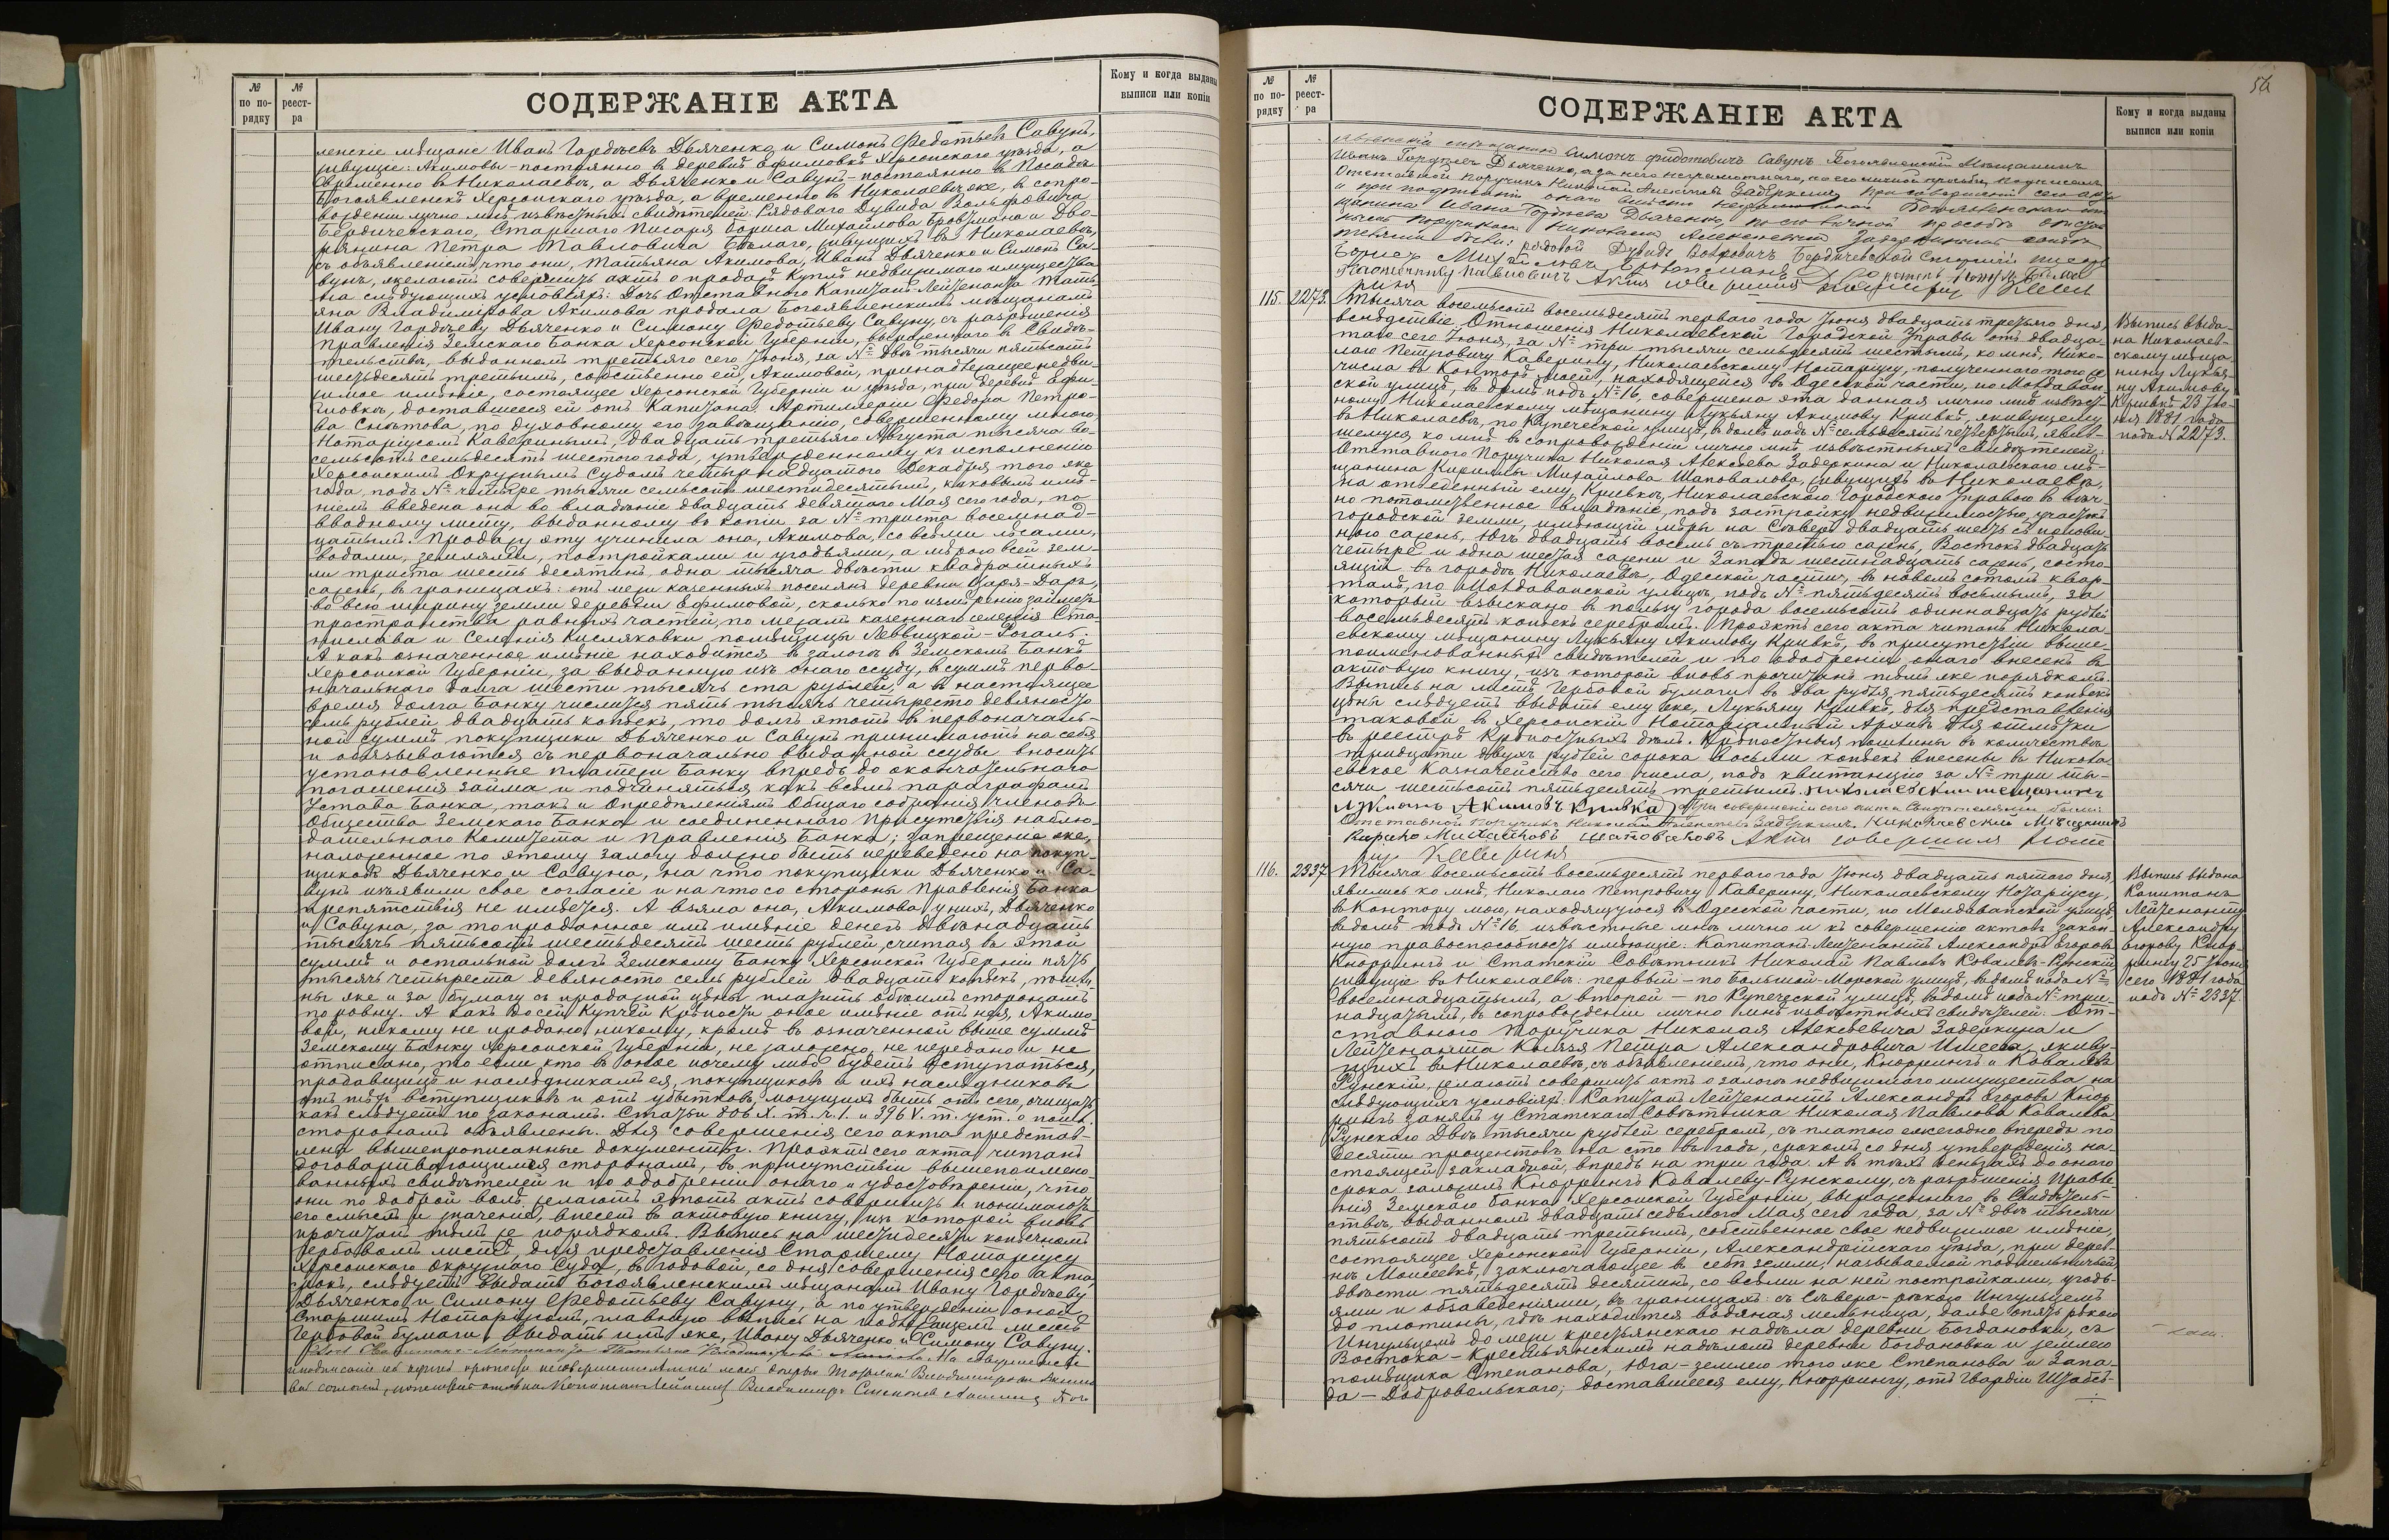 № по по-рядку
№ реест-ра
СОДЕРЖАНІЕ АКТА
Кому и когда выданы выписи или копіи
ленскіе мѣщане Иванъ Гордѣевъ Дьяченко и Симонъ Федотьевъ Савунъ,
живущіе: Акимовы - постоянно въ деревнѣ Ефимовкѣ Херсонскаго уѣзда, а
временно въ Николаевѣ, а Дьяченко и Савунъ - постоянно въ Посадѣ
Богоявленскѣ Херсонскаго уѣзда, а временно въ Николаевѣ же, въ сопро-
вожденіи лично мнѣ извѣстныхъ свидѣтелей: Рядоваго Дувида Вольфовича
Бердическаго, Старшаго Писаря Бориса Михайлова Бровзмана и Дво-
рянина Петра Павловича Бѣлаго, живущихъ въ Николаевѣ,
съ объявленіемъ, что они, Татьяна Акимова, Иванъ Дьяченко и Симонъ Са-
вунъ, желаютъ совершить актъ о продажѣ куплѣ недвижимаго имущества
на слѣдующихъ условіяхъ: Дочь Отставнаго Капитанъ-Лейтенанта Тать-
яна Владимірова Акимова продала Богоявленскимъ мѣщанамъ
Ивану Гордѣеву Дьяченко и Симону Федотьеву Савуну, съ разрѣшенія
Правленія Земскаго Банка Херсонской Губерніи, выраженнаго въ Свидѣ-
тельствѣ, выданномъ третьяго сего Іюня, за № двѣ тысячи пятьсотъ
шестьдесятъ третьимъ, собственно ей, Акимовой, принадлежащее недви-
жимое имѣніе, состоящее Херсонской Губерніи и уѣзда, при деревнѣ Ефи-
мовкѣ, доставшееся ей отъ Капитана Артиллеріи Федора Петро-
ва Снѣтова, по духовному его завѣщанію, совершенному мною,
Нотаріусомъ Кавериннымъ, двадцать третьяго Августа тысяча во-
семьсотъ семьдесятъ шестого года, утвержденному къ исполненію
Херсонскимъ Окружнымъ Судомъ четырнадцатого Декабря того же
года, подъ № четыре тысячи семьсотъ шестидесятымъ, каковымъ имѣ-
ніемъ введена она во владѣніе двадцать девятаго Мая сего года, по
вводному листу, выданному въ копіи за № триста восемнад-
цатымъ. Продажу эту учинила она, Акимова, со всѣми лѣсами,
водами, землями, постройками и угодьями, а мѣрою всей зем-
ли триста шесть десятинъ одна тысяча двѣсти квадратныхъ
сажень, въ границахъ: отъ межи казенныхъ поселянъ деревни Царя-Даръ,
во всю ширину земли деревни Ефимовой, сколько по измѣренію займетъ
пространства равныхъ частей, по межамъ казеннаго селенія Ста-
нислава и Селенія Кисляковки помѣщицы Левицкой-Рогаль.
А какъ означенное имѣніе находится въ залогѣ въ Земскомъ Банкѣ
Херсонской Губерніи, за выданную изъ онаго ссуду, въ суммѣ перво-
начальнаго долга шести тысячъ ста рублей, а въ настоящее
время долга Банку числится пять тысячъ четыресто девяносто
семь рублей двадцать копѣекъ, то долгъ этотъ въ первоначаль-
ной суммѣ покупщики Дьяченко и Савунъ принимаютъ на себя
и обязываются съ первоначально выданной ссуды вносить
установленные платежи Банку впредь до окончательнаго
погашенія займа и подчиняться какъ всѣмъ параграфамъ
Устава Банка, такъ и Опредѣленіямъ Общаго собранія членовъ
Общества Земскаго Банка и соединеннаго Присутствія наблю-
дательнаго Комитета и Правленія Банка; запрещеніе же,
наложенное по этому залогу должно быть переведено на покуп-
щиковъ Дьяченко и Савуна, на что покупщики Дьяченко и Са-
вунъ изъявили свое согласіе и на что со стороны Правленія Банка
препятствія не имѣется. А взяла она, Акимова, у нихъ, Дьяченко
и Савуна, за то проданное имъ имѣніе денегъ двѣнадцать
тысячъ пятьсотъ шестьдесятъ шесть рублей, считая въ этой
суммѣ и остальной долгъ Земскому Банку Херсонской Губерніи пять
тысячъ четыреста девяносто семь рублей двадцать копѣекъ, пошли-
ны же и за бумагу съ продажной цѣны платить обѣимъ сторонамъ
по ровну. А какъ до сей Купчей Крѣпости оное имѣніе отъ нея, Акимо-
вой, никому не продано, никому, кромѣ въ означенной выше суммѣ
Земскому Банку Херсонской Губерніи, не заложено, не передано и не
отписано, то если кто въ оное почему либо будетъ вступаться,
продавщицѣ и наслѣдникамъ ея, покупщиковъ и ихъ наслѣдниковъ
отъ тѣхъ вступщиковъ и отъ убытковъ, могущихъ быть отъ сего, очищать
какъ слѣдуетъ по законамъ. Статьи X. т. ч. 1. и 396 V. т. уст. о пошл.
сторонамъ объявлены. Для совершенія сего акта представ-
лены вышепрописанные документы. Проэктъ сего акта читанъ
договаривающимся сторонамъ, въ присутствіи вышепоимено-
ванныхъ свидѣтелей и по одобреніи онаго и удостовѣреніи, что
они по доброй волѣ желаютъ этотъ актъ совершить и понимаютъ
его смыслъ и значеніе, внесенъ въ актовую книгу, изъ которой вновь
прочитанъ тѣмъ же порядкомъ. Выпись на шестидесяти копѣечномъ
гербовомъ листѣ, для представленія Старшему Нотаріусу
Херсонскаго Окружнаго Суда, въ годовой, со дня совершенія сего акта,
срокъ, слѣдуетъ выдать Богоявленскимъ мѣщанамъ Ивану Гордѣеву
Дьяченко и Симону Федотьеву Савуну, а по утвержденіи оной
Старшимъ Нотаріусомъ, главную выпись на подлежащемъ листѣ
Гербовой бумаги, выдать имъ же, Ивану Дьяченко и Симону Савуну.
Дочь Капитана-Лейтенанта Татьяна Владимірова Акимова. На совершеніе и
подписаніе сей купчей крѣпости несовершеннолѣтней моей дочерью Татьяной Владиміровой Акимовой
56
№ по по-рядку
№ реест-ра
СОДЕРЖАНІЕ АКТА
Кому и когда выданы выписи или копіи
явленскій мѣщанинъ Симонъ Фидотовичъ Савунъ Богоявленскій Мѣщанинъ
Иванъ Гордѣевъ Дьяченко, а за него неграмотнаго, по его личной просьбѣ, подписалъ
Отставной Поручикъ Николай Алексѣевъ Задеркинъ
115. 2273. Тысяча восемьсотъ восемьдесятъ перваго года Іюня двадцать третьяго дня,
вслѣдствіе Отношенія Николаевской Городской Управы отъ двадца-
таго сего Іюня, за № три тысячи семьдесятъ шестымъ, ко мнѣ, Нико-
лаю Петровичу Каверину, Николаевскому Нотаріусу, полученнаго того же
числа въ Конторѣ моей, находящейся въ Одесской части, по Молдаван-
ской улицѣ, въ домѣ подъ № 16, совершена эта данная лично мнѣ извѣст-
ному Николаевскому мѣщанину Лукьяну Акимову Кривкѣ, живущему
въ Николаевѣ, по Купеческой улицѣ, въ домѣ подъ № семьдесятъ четвертымъ, явив-
шемуся ко мнѣ въ сопровожденіи лично мнѣ извѣстныхъ свидѣтелей:
Отставнаго Поручика Николая Алексѣева Задеркина и Николаевскаго мѣ-
щанина Кириллы Михайлова Шаповалова, живущихъ въ Николаевѣ,
на отведенный ему, Кривкѣ, Николаевскою Городскою Управою въ вѣч-
но потомственное владѣніе, подъ застройку недвижимостью, участокъ
городской земли, имѣющій мѣры на Сѣверъ двадцать шесть съ полови-
ною сажень, Югъ двадцать восемь съ третью сажень, Востокъ двадцать
четыре и одна шестая сажени и Западъ шестнадцать сажень, состо-
ящій въ городѣ Николаевѣ, Одесской части, въ новомъ сотомъ квар-
талѣ, по Молдаванской улицѣ, подъ № пятьдесятъ восьмымъ, за
который взыскано въ пользу города восемьсотъ одиннадцать рублей
восемьдесятъ копѣекъ серебромъ. Проэктъ сего акта читанъ Никола-
евскому мѣщанину Лукьяну Акимову Кривкѣ, въ присутствіи выше-
поименованныхъ свидѣтелей и по одобреніи онаго внесенъ въ
актовую книгу, изъ которой вновь прочитанъ тѣмъ же порядкомъ.
Выпись на листѣ гербовой бумаги въ два рубля пятьдесятъ копѣекъ
цѣны слѣдуетъ выдать ему же, Лукьяну Кривкѣ, для представленія
таковой въ Херсонскій Нотаріальный Архивъ для отмѣтки
въ реестрѣ Крѣпостныхъ дѣлъ. Крѣпостныя пошлины въ количествѣ
тридцати двухъ рублей сорока восьми копѣекъ внесены въ Никола-
евское Казначейство сего числа, подъ квитанцію за № три ты-
сячи шестьсотъ пятьдесятъ третьимъ. Николаевский мещанинъ
Лукианъ Акимовъ Кривка При совершеніи сего акта Свидѣтелями были:
Отставной Поручикъ Николай Алексѣевъ Задеркинъ. Николаевский Мѣщанинъ
Кирило Михайловъ Шаповаловъ Актъ совершилъ Нота-
ріусъ Каверинъ
Выпись выда-
на Николаев-
скому мѣща-
нину Лукья-
ну Акимову
Кривкѣ 23 Ію-
ня 1881 года
подъ № 2273.
116. 2337. Тысяча восемьсотъ восемьдесятъ перваго года Іюня двадцать пятаго дня,
явились ко мнѣ, Николаю Петровичу Каверину, Николаевскому Нотаріусу,
въ Контору мою, находящуюся въ Одесской части, по Молдаванской улицѣ,
въ домѣ подъ № 16, извѣстные мнѣ лично и къ совершенію актовъ закон-
ную правоспособность имѣющіе: Капитанъ-Лейтенантъ Александръ Егоровъ
Кноррингъ и Статскій Совѣтникъ Николай Павловъ Ковалевъ-Рунскій,
живущіе въ Николаевѣ: первый - по Большой-Морской улицѣ, въ домѣ подъ №
восемнадцатымъ, а второй - по Купеческой улицѣ, въ домѣ подъ № три-
надцатымъ, въ сопровожденіи лично мнѣ извѣстныхъ свидѣтелей: От-
ставного Поручика Николая Алексѣевича Задеркина и
Лейтенанта Князя Петра Александровича живу-
щихъ въ Николаевѣ, съ объявленіемъ, что они, Кноррингъ и Ковалевъ
Рунскій, желаютъ совершить актъ о залогѣ недвижимаго имущества на
слѣдующихъ условіяхъ: Капитанъ Лейтенантъ Александръ Егоровъ Кнор-
рингъ занялъ у Статскаго Совѣтника Николая Павлова Ковалева
Рунскаго двѣ тысячи рублей серебромъ, съ платою ежегодно впередъ по
десяти процентовъ на сто въ годъ, срокомъ со дня утвержденія на-
стоящей закладной, впредь на три года. А въ тѣхъ деньгахъ до онаго
срока заложилъ Кноррингъ Ковалеву-Рунскому, съ разрѣшенія Правле-
нія Земскаго Банка Херсонской Губерніи, выраженнаго въ Свидѣтель-
ствѣ, выданномъ двадцать седьмого Мая сего года, за № двѣ тысячи
пятьсотъ двадцать третьимъ, собственное свое недвижимое имѣніе,
состоящее Херсонской Губерніи, Александрійскаго уѣзда, при дерев-
нѣ Моисеевкѣ, заключающее въ себѣ земли, называемой подмельничной,
двѣсти пятьдесятъ десятинъ, со всѣми на ней постройками, угодь-
ями и обзаведеніями, въ границахъ: съ Сѣвера - рѣкою Ингульцемъ
до плотины, гдѣ находится водяная мельница, далѣе опять рѣкою
Ингульцемъ до межи крестьянскаго надѣла деревни Богдановки, съ
Востока - Крестьянскимъ надѣломъ деревни Богдановки и землею
помѣщика Степанова, Юга - землею того же Степанова и Запа-
да - Добровольскаго; доставшееся ему, Кноррингу, отъ Гвардіи Штабсъ-
Выпись выдана
Капитанъ
Лейтенанту
Александру
Егорову Кнор-
рингу 25 Іюня
сего 1881 года
подъ № 2337.